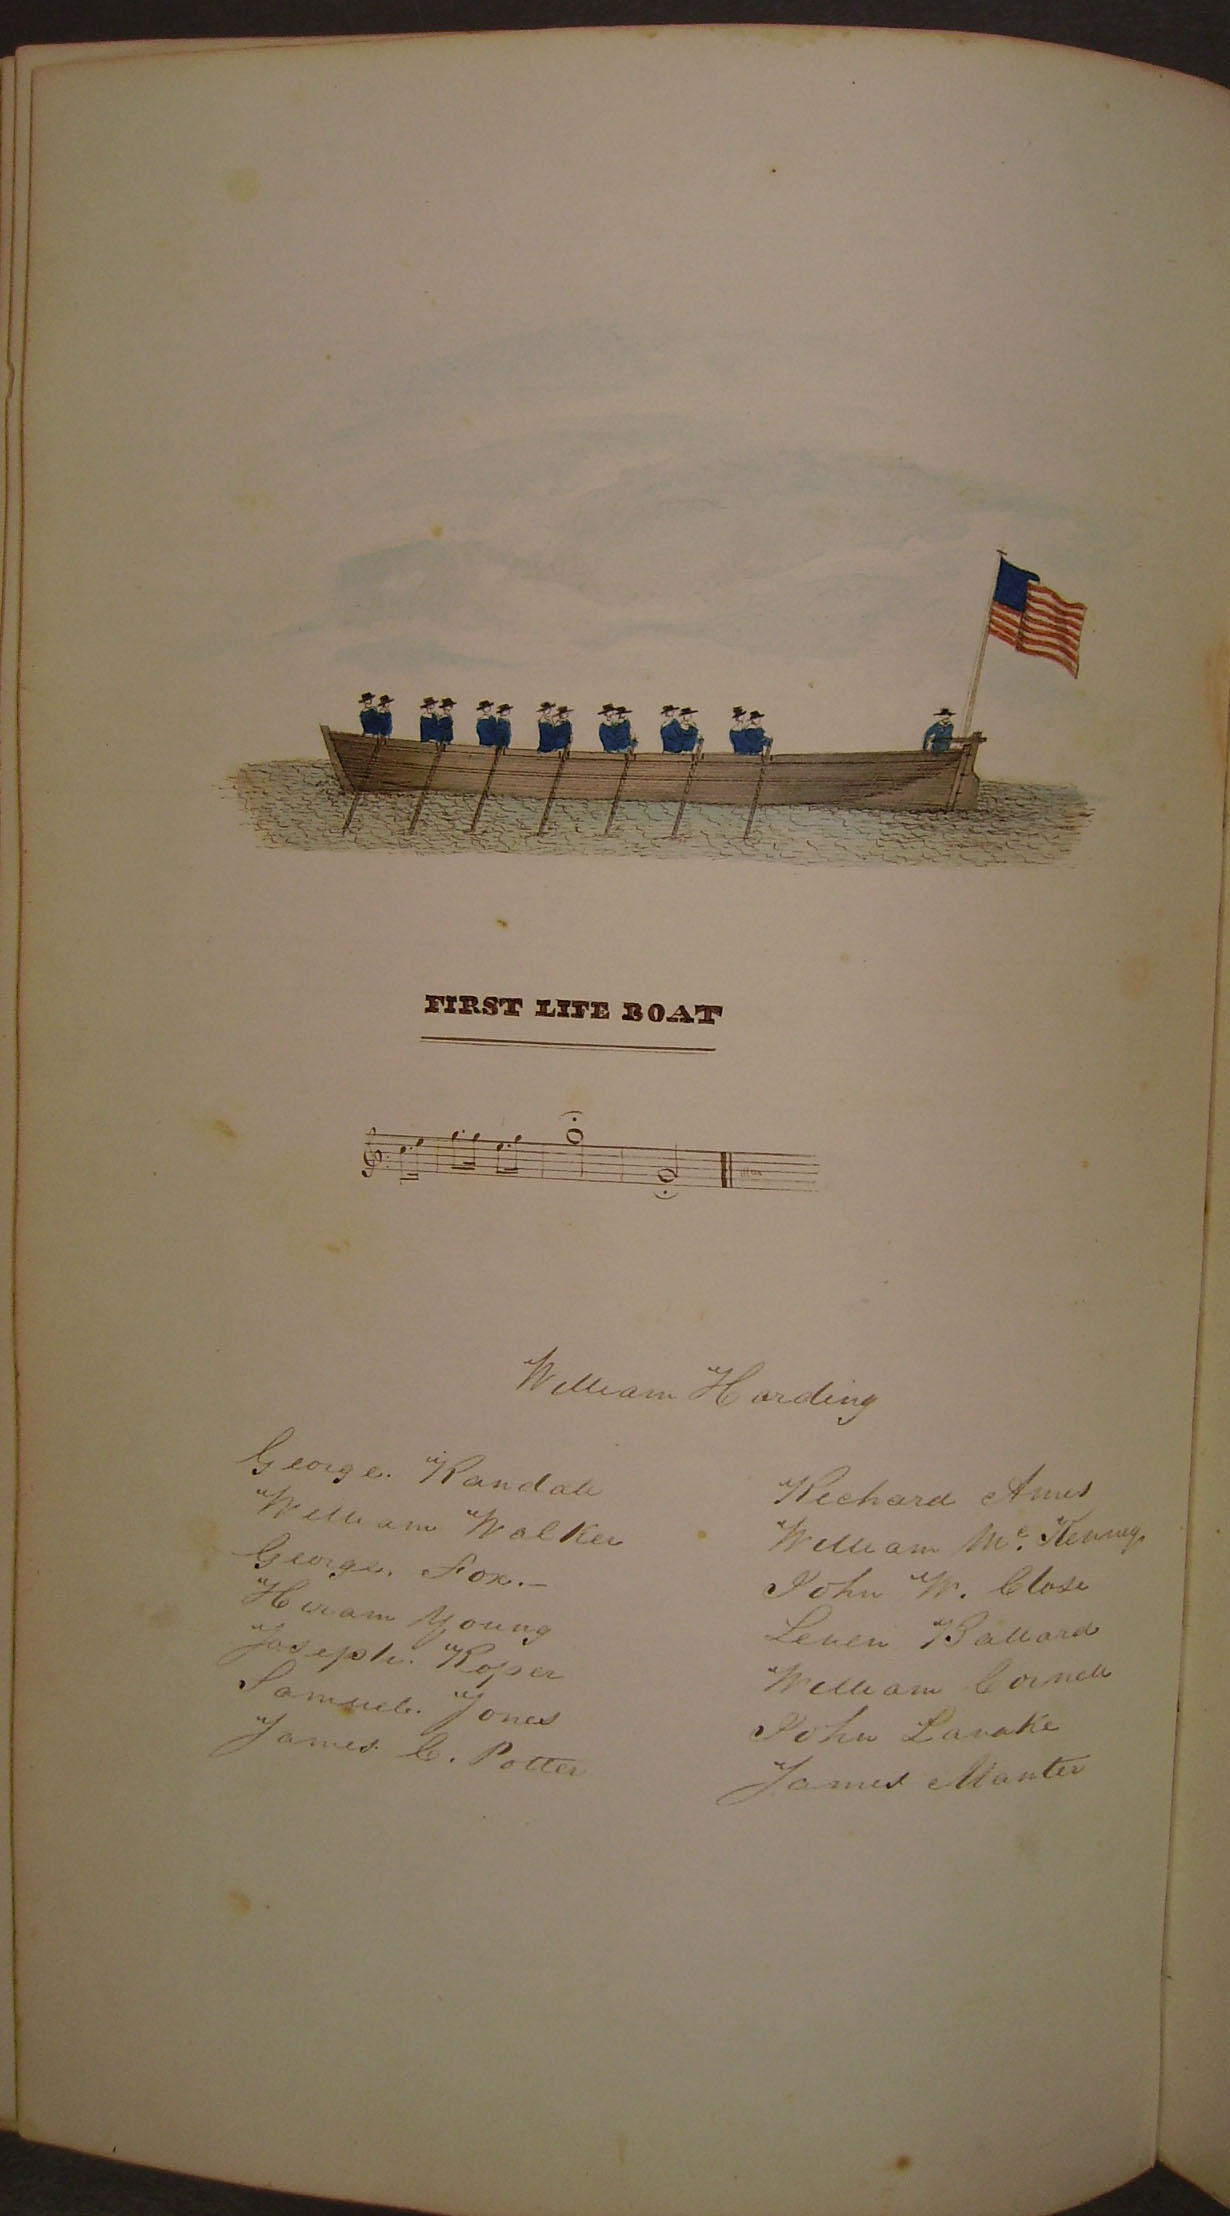 FIRST LIFE BOAT
William Harding
George. Randall
William Walker
George. Fox.-
Hiram Young
Joseph. Roper
Samuel. Jones
James C. Potter
Richard Ames
William Mc. Kenney
John W. Close
Leven Ballard
William Cornell
John Lavake
James Manter